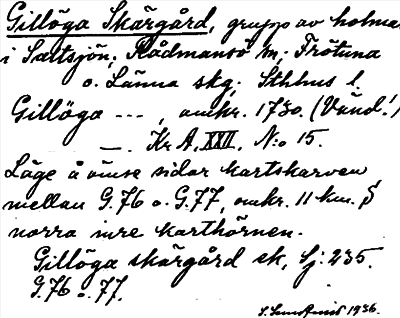 Gillöga Skärgård, grupp av holmar
i Saltsjön; Rådmansö sn; Frötuna
o. Länna skg; Sthlms l.
Gillöga ---, omkr. 1730. (Vänd!)
—. Kr. A. XXII. N:o 15.
Läge å ömse sidor kartskarven
mellan G.76 o. G.77, omkr. 11 km. S
norra inre karthörnen.
Gillöga skärgård ek, Sj: 235.
G.76 o. 77.
1936.